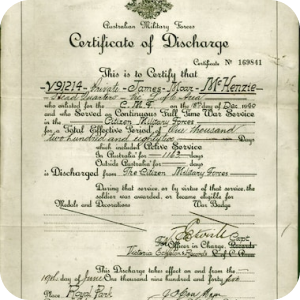 Australian Military Forces
Certificate of Discharge
Certificate No 169841
This is to Certify that
V91214 - Private - James - Moar - McKenzie
Head Quarter
who enlisted for the C.M.F. on the day of Dec 1940
and who Served on Continuous Full Time War Service
in the Citizen Military Forces
for a Total Effective Period of One thousand
two hundred and Days
which included Active Service
In Australia for 1163 days
Outside Australia for days
is Discharged from The Citizen Military Forces
During that service, or by virtue of that service, the
soldier was awarded, or became eligible for
Medals and Decorations War Badge
Officer in Charge Records
Victoria Echelon & Records
This Discharge takes effect on and from the
19th June One thousand nine hundred and forty
Place Royal Park